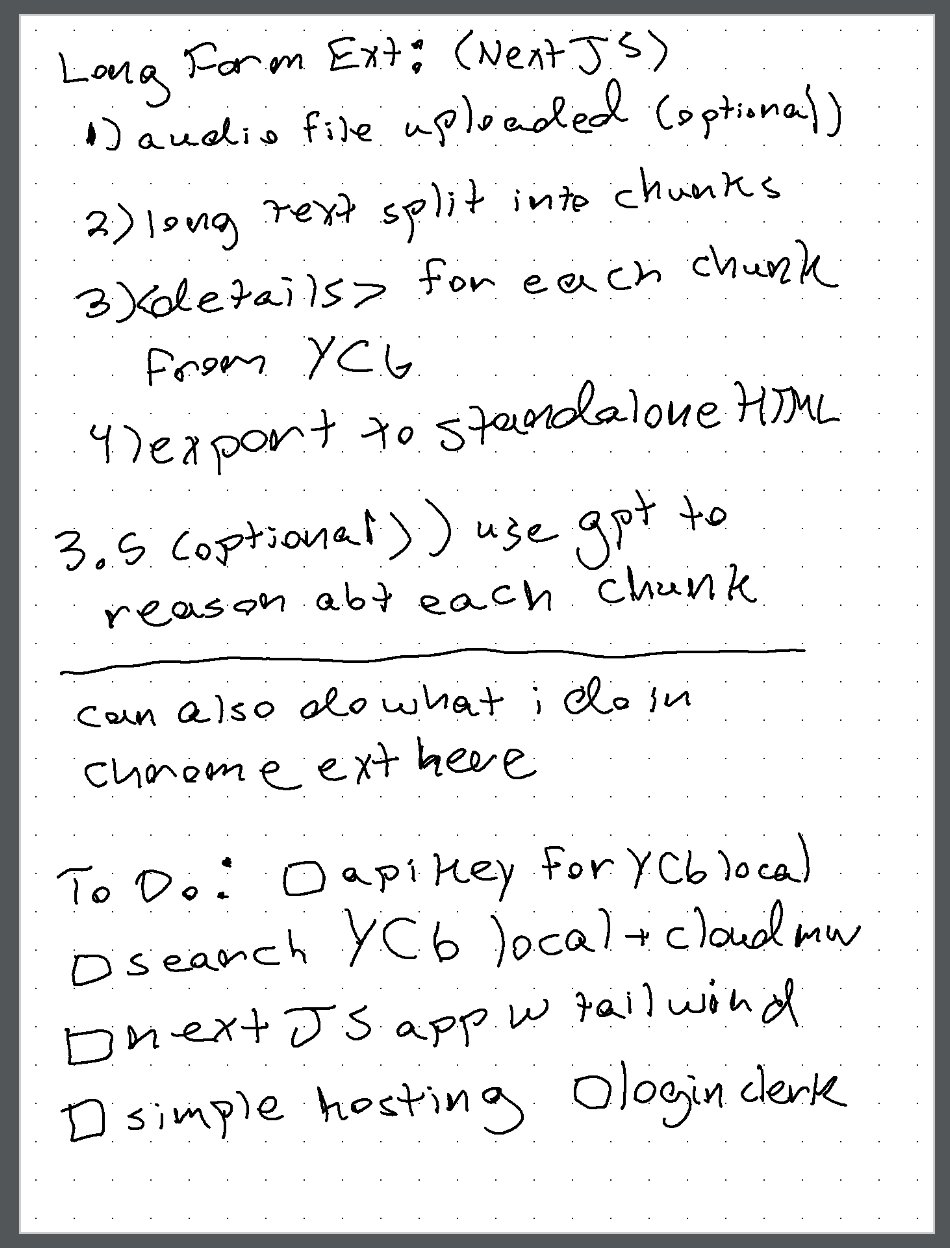 Long Form Ext: (Next JS)
1) audio file uploaded (optional)
2) long text split into chunks
3) <details> for each chunk
from YCb
4) export to standalone HTML
3.5 (optional)) use gpt to
reason abt each chunk
can also do what i do in
chrome ext here
To Do: □ api key for YCb local
□ search YCb local + cloud mw
□ next JS app w tailwind
□ simple hosting □ login clerk